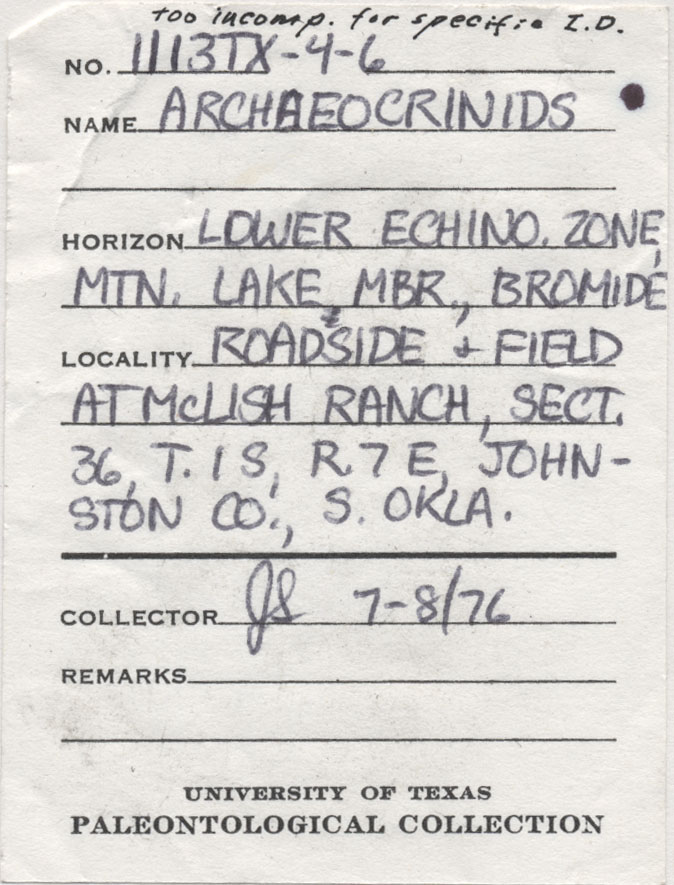 too incomp. for specific I.D.
NO. 1113TX-4-6
NAME ARCHAEOCRINIDS
HORIZON LOWER ECHINO. ZONE,
MTN. LAKE MBR., BROMIDE
LOCALITY ROADSIDE + FIELD
AT McLISH RANCH, SECT.
36, T. 1 S, R 7 E, JOHN-
STON CO., S. OKLA.
COLLECTOR JS 7-8/76
REMARKS
UNIVERSITY OF TEXAS
PALEONTOLOGICAL COLLECTION